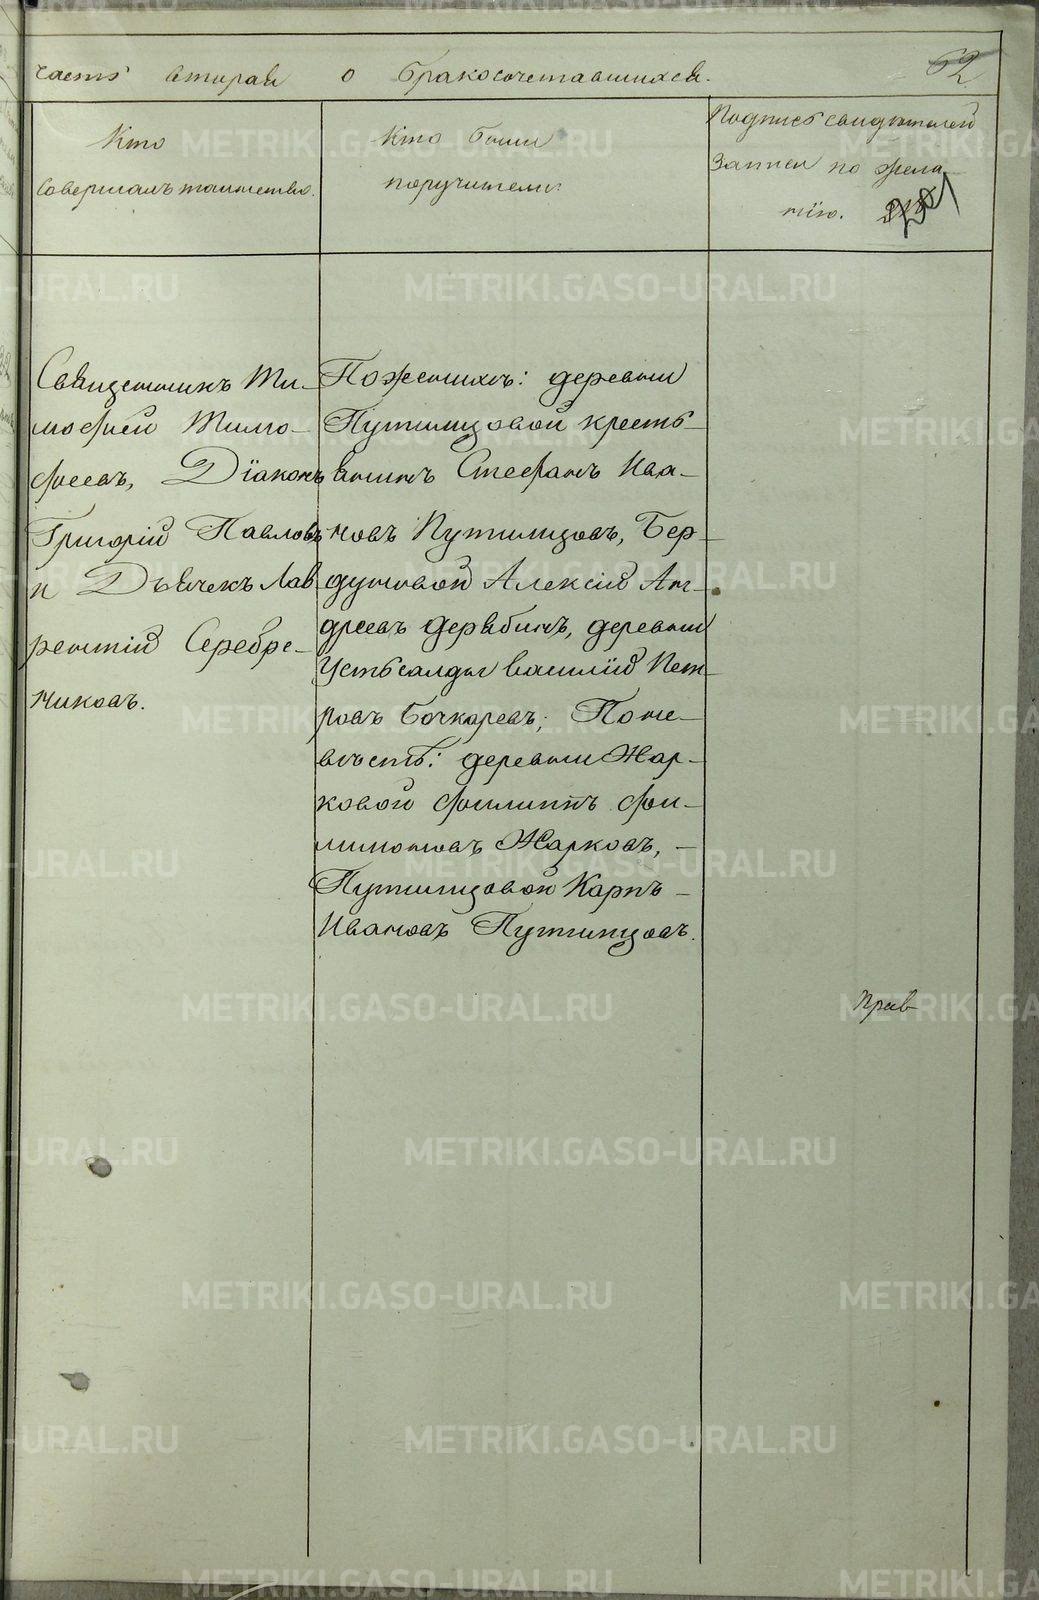 часть вторая о бракосочетавшихся.
62
Кто
совершалъ таинство.
Кто были
поручители
Подпись свидѣтелей
записи по жела
нію.
Священникъ Ти-
мофей Тимо-
феевъ, Діаконъ
Григорій Павловъ
и Дьячекъ Лав
рентій Серебре-
никовъ.
По женихѣ: деревни
Путимцовой кресть-
янинъ Стефанъ Ива-
новъ Путимцовъ, Бер-
дуновой Алексій Ан-
дреевъ Дерябинъ, деревни
Устьсалды Василій Пет-
ровъ Бочкаревъ; По не-
вѣстѣ: деревни Жар-
ковой Филиппъ Фи-
лимоновъ Жарковъ, -
Путимцовой Карпъ -
Ивановъ Путимцовъ.
Прав
METRIKI.GASO-URAL.RU